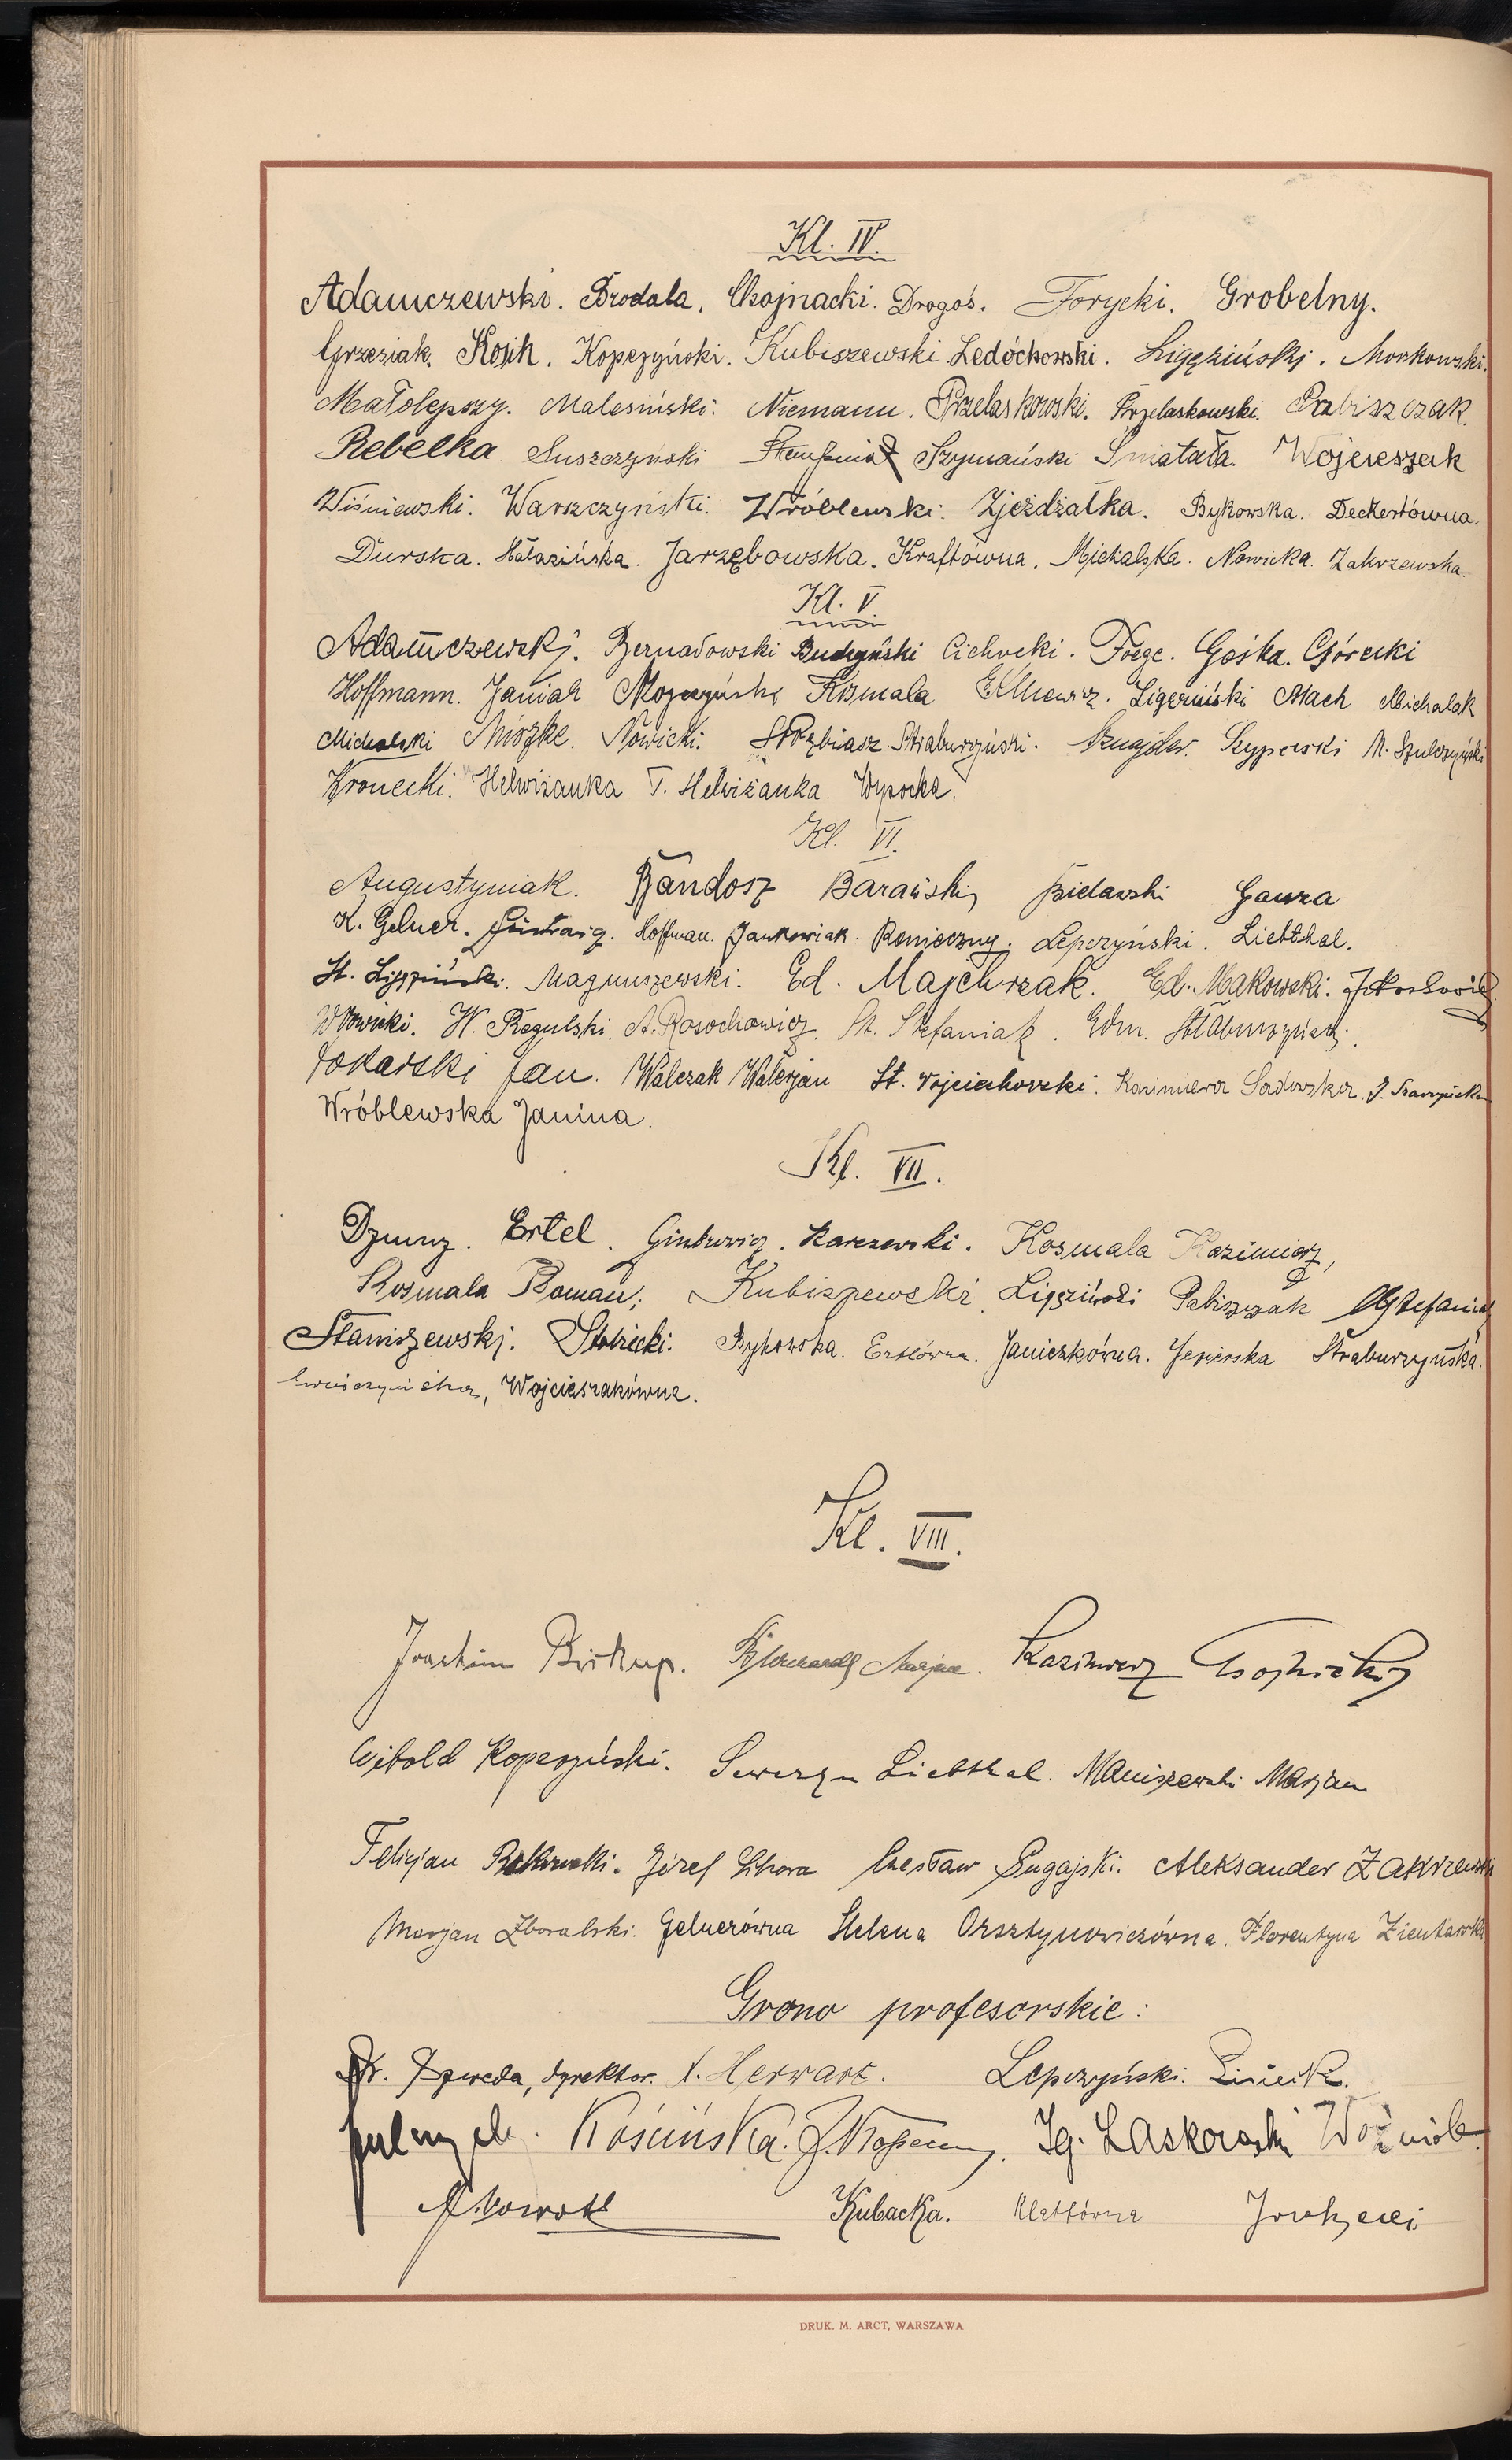 Kl. IV.
Adamczewski. Brodala. Chojnacki. Drogoś. Forycki. Grobelny.
Grzesiak. Kosik. Kopczyński. Kubiszewski Ledóchowski. Ligęziński. Morkowski.
Małolepszy. Malesiński. Niemann. Przelaskowski. Przelaskowski. Pabiszczak.
Rebelka Suszczyński Szymański Śniatała. Wojcieszak
Wiśniewski. Warszczyński. Wróblewski. Zjeżdżałka. Bykowska. Deckertówna.
Durska. Hałasińska. Jarzębowska. Kraftówna. Michalska. Nowicka. Zakrzewska.
Kl. V.
Adamczewski. Bernadowski Budzyński Cichocki. Foege. Gośka. Górecki
Hoffmann. Janiak Kosmala Ligęziński Mach Michalak
Michalski Nowicki. Straburzyński. Szyperski M. Szulczyński
Kronecki. Helwiżanka T. Helwiżanka. Wysocka.
Kl. VI.
Augustyniak. Bandosz Barański Bielawski Gauza
K. Gelner. Hoffman. Jankowiak. Konieczny. Lepczyński. Liebthal.
St. Ligęziński. Magnuszewski. Ed. Majchrzak. Ed. Makowski.
W. Regulski. A. Rosochowicz. St. Stefaniak. Edm. Straburzyński.
Tokarski Jan. Walczak Walerjan St. Wojciechowski. Kazimiera Sadowska.
Wróblewska Janina.
Kl. VII.
Ertel. Gintowicz. Karczewski. Kosmala Kazimierz,
Kosmala Roman. Kubiszewski Ligęziński Pabiszczak
Staniszewski. Bykowska. Ertlówna. Janiczkówna. Jezierska Straburzyńska.
Ćwiończyńska, Wojcieszakówna.
Kl. VIII.
Joachim Biskup. Kazimierz
Witold Kopczyński. Seweryn Liebthal. Maniszewski Marjan
Felicjan Józef Sikora Czesław Sugajski. Aleksander Zakrzewski
Marjan Zboralski. Gelnerówna Helena Orsztynowiczówna. Florentyna Zientarska
Grono profesorskie:
Dr. Szweda, dyrektor. Herwart. Lepczyński.
Kościńska. Ig. Laskowski Woźniak
Kubacka. Klattówna
DRUK. M. ARCT, WARSZAWA